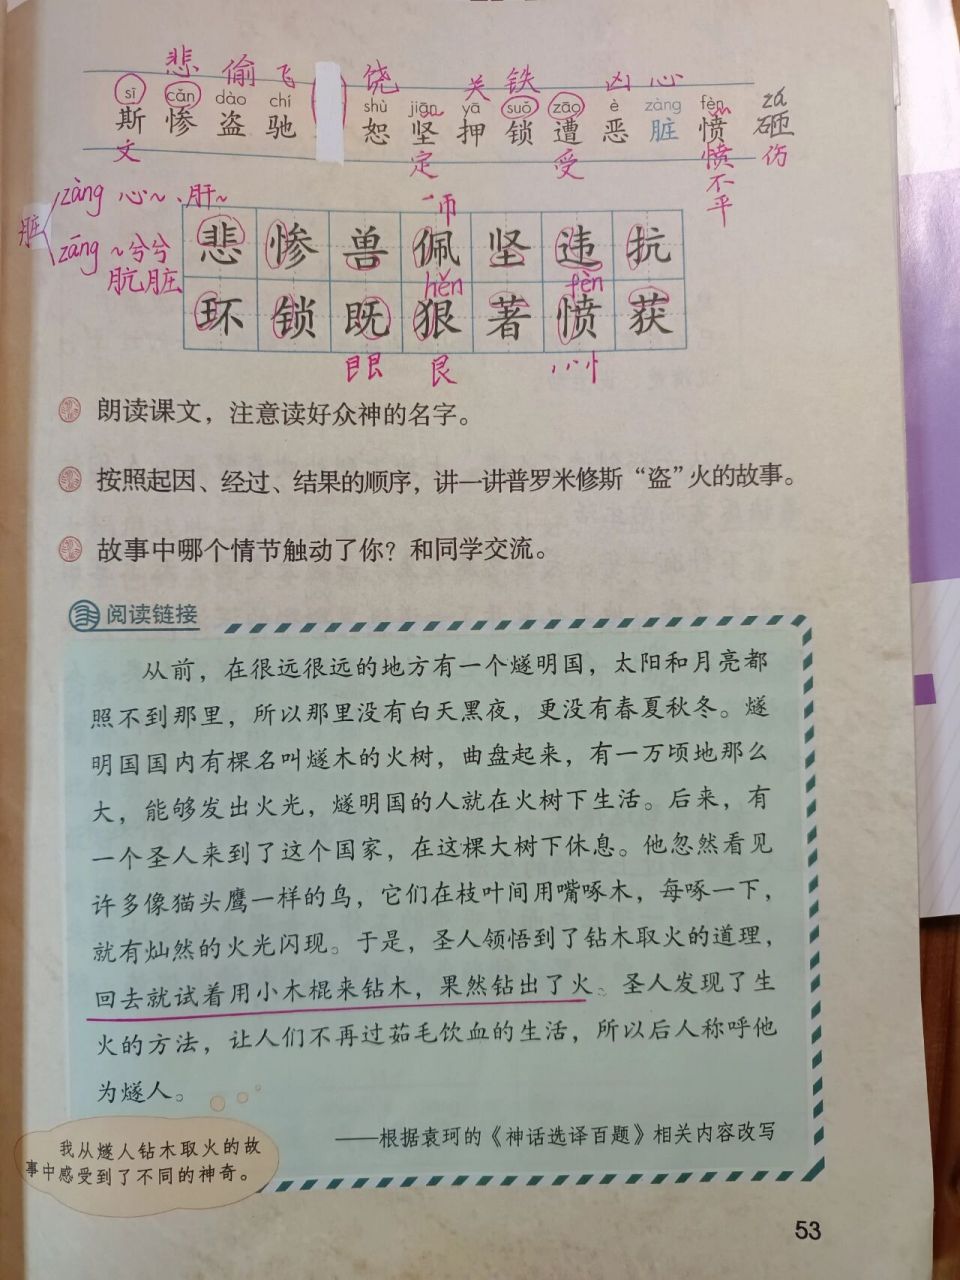 悲 偷 飞 饶 关 铁 凶 心
sī cǎn dào chí shù jiān yā suǒ zāo è zàng fèn zá
斯 惨 盗 驰 恕 坚 押 锁 遭 恶 脏 愤 砸
文 定 受 愤不平 伤
脏 zàng 心~、肝~
zāng ~兮兮
肮脏
一师
悲 惨 兽 佩 坚 违 抗
hěn fèn
环 锁 既 狠 著 愤 获
艮
朗读课文，注意读好众神的名字。
按照起因、经过、结果的顺序，讲一讲普罗米修斯“盗”火的故事。
故事中哪个情节触动了你？和同学交流。
阅读链接
从前，在很远很远的地方有一个燧明国，太阳和月亮都
照不到那里，所以那里没有白天黑夜，更没有春夏秋冬。燧
明国国内有棵名叫燧木的火树，曲盘起来，有一万顷地那么
大，能够发出火光，燧明国的人就在火树下生活。后来，有
一个圣人来到了这个国家，在这棵大树下休息。他忽然看见
许多像猫头鹰一样的鸟，它们在枝叶间用嘴啄木，每啄一下，
就有灿然的火光闪现。于是，圣人领悟到了钻木取火的道理，
回去就试着用小木棍来钻木，果然钻出了火。圣人发现了生
火的方法，让人们不再过茹毛饮血的生活，所以后人称呼他
为燧人。
——根据袁珂的《神话选译百题》相关内容改写
我从燧人钻木取火的故
事中感受到了不同的神奇。
53